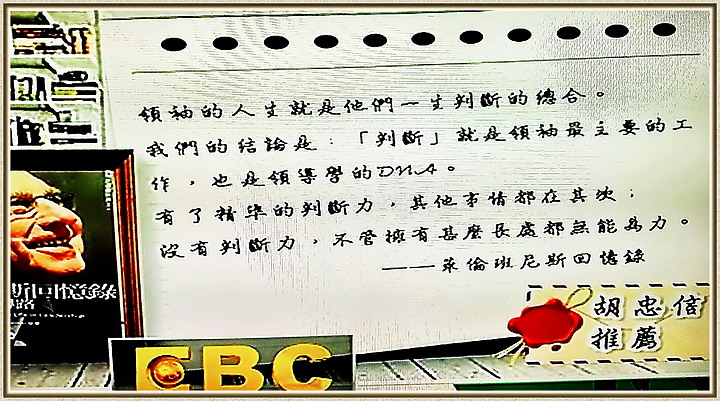 領袖的人生就是他們一生判斷的總合。
我們的結論是：「判斷」就是領袖最主要的工
作，也是領導學的DNA。
有了精準的判斷力，其他事情都在其次；
沒有判斷力，不管擁有甚麼長處都無能為力。
——華倫班尼斯回憶錄
斯回憶錄
胡忠信
推薦
EBC